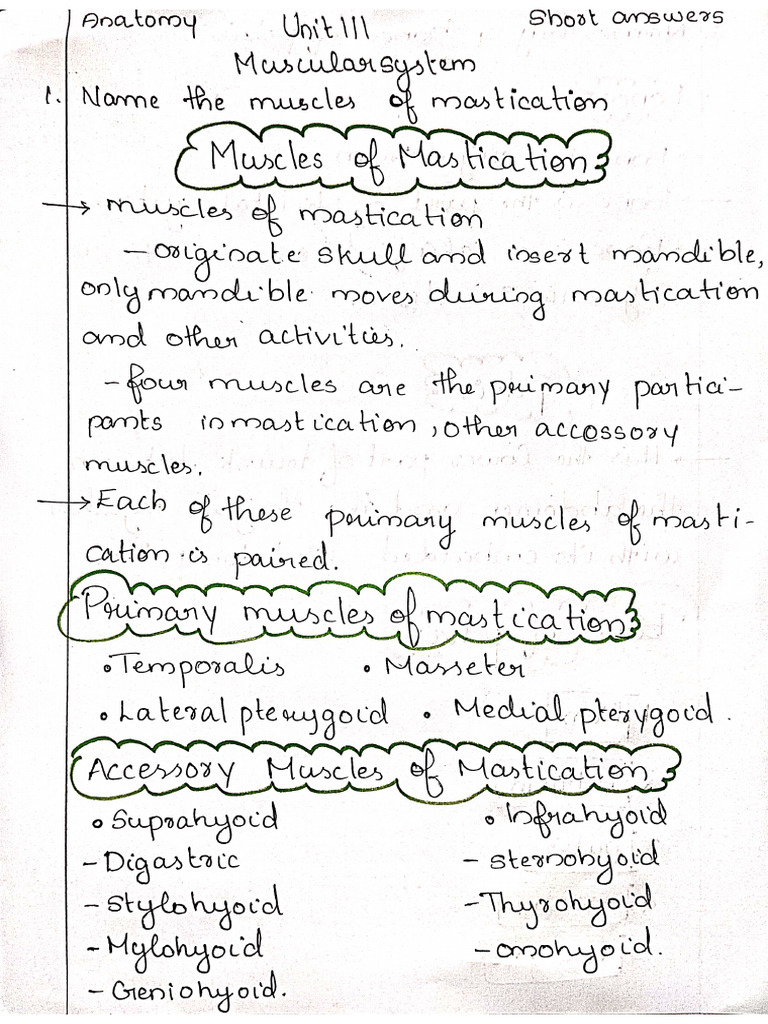 Anatomy Unit III Short answers
Muscular system
1. Name the muscles of mastication
Muscles of Mastication
→ muscles of mastication
- originate skull and insert mandible,
only mandible moves during mastication
and other activities.
- four muscles are the primary partici-
pants in mastication, other accessory
muscles.
→ Each of these primary muscles of masti-
cation is paired.
Primary muscles of mastication
• Temporalis • Masseter
• Lateral pterygoid • Medial pterygoid.
Accessory Muscles of Mastication
• Suprahyoid • Infrahyoid
- Digastric - Sternohyoid
- Stylohyoid - Thyrohyoid
- Mylohyoid - omohyoid.
- Geniohyoid.